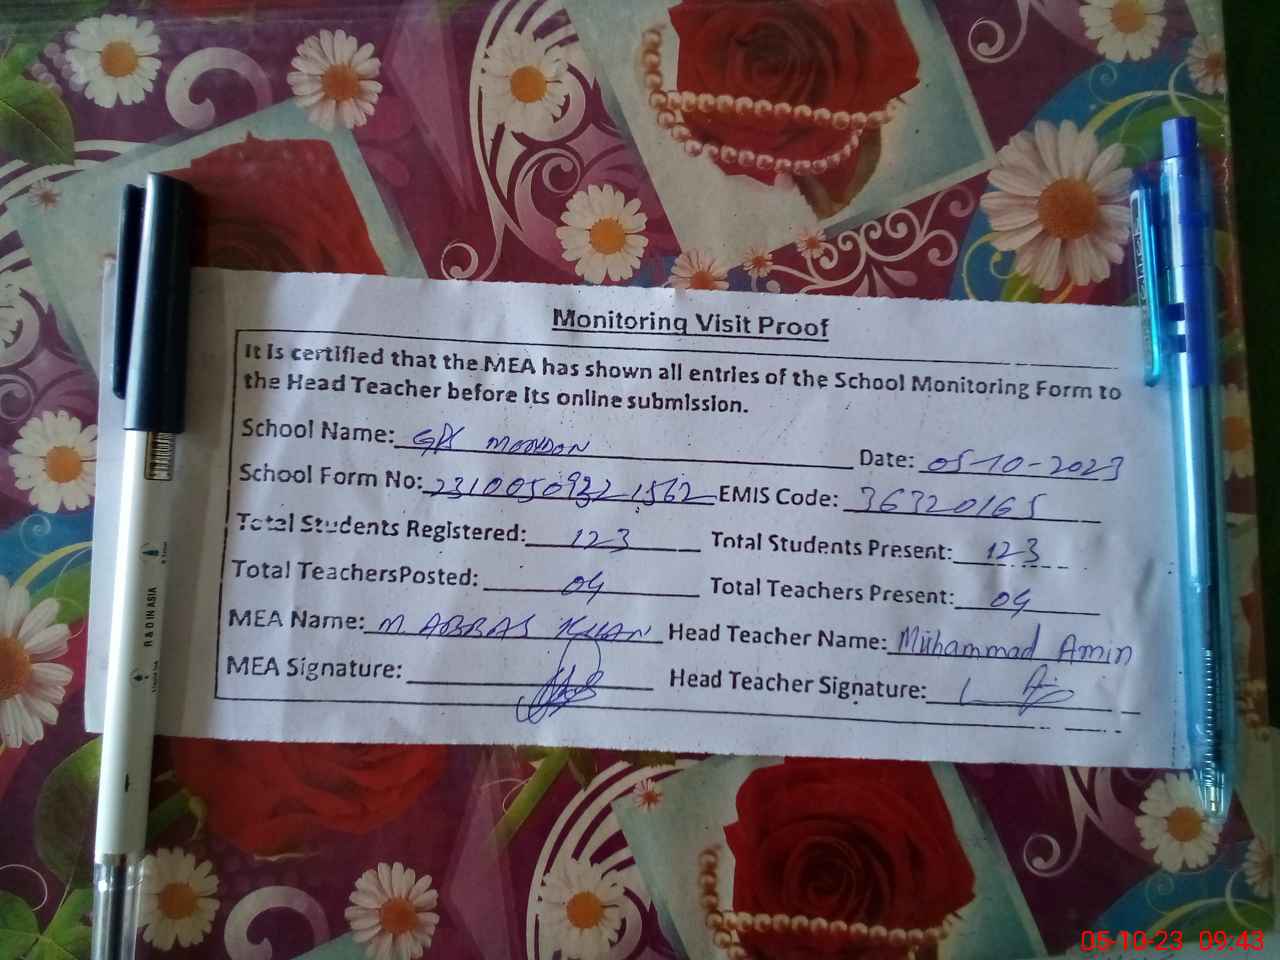 Monitoring Visit Proof
It is certified that the MEA has shown all entries of the School Monitoring Form to
the Head Teacher before its online submission.
School Name: GPS MOONDON Date: 05-10-2023
School Form No: EMIS Code: 36320165
Total Students Registered: 123 Total Students Present: 123
Total TeachersPosted: 04 Total Teachers Present: 04
MEA Name: M. ABBAS KHAN Head Teacher Name: Muhammad Amin
MEA Signature: Head Teacher Signature:
R & D IN ASIA
05-10-23 09:43